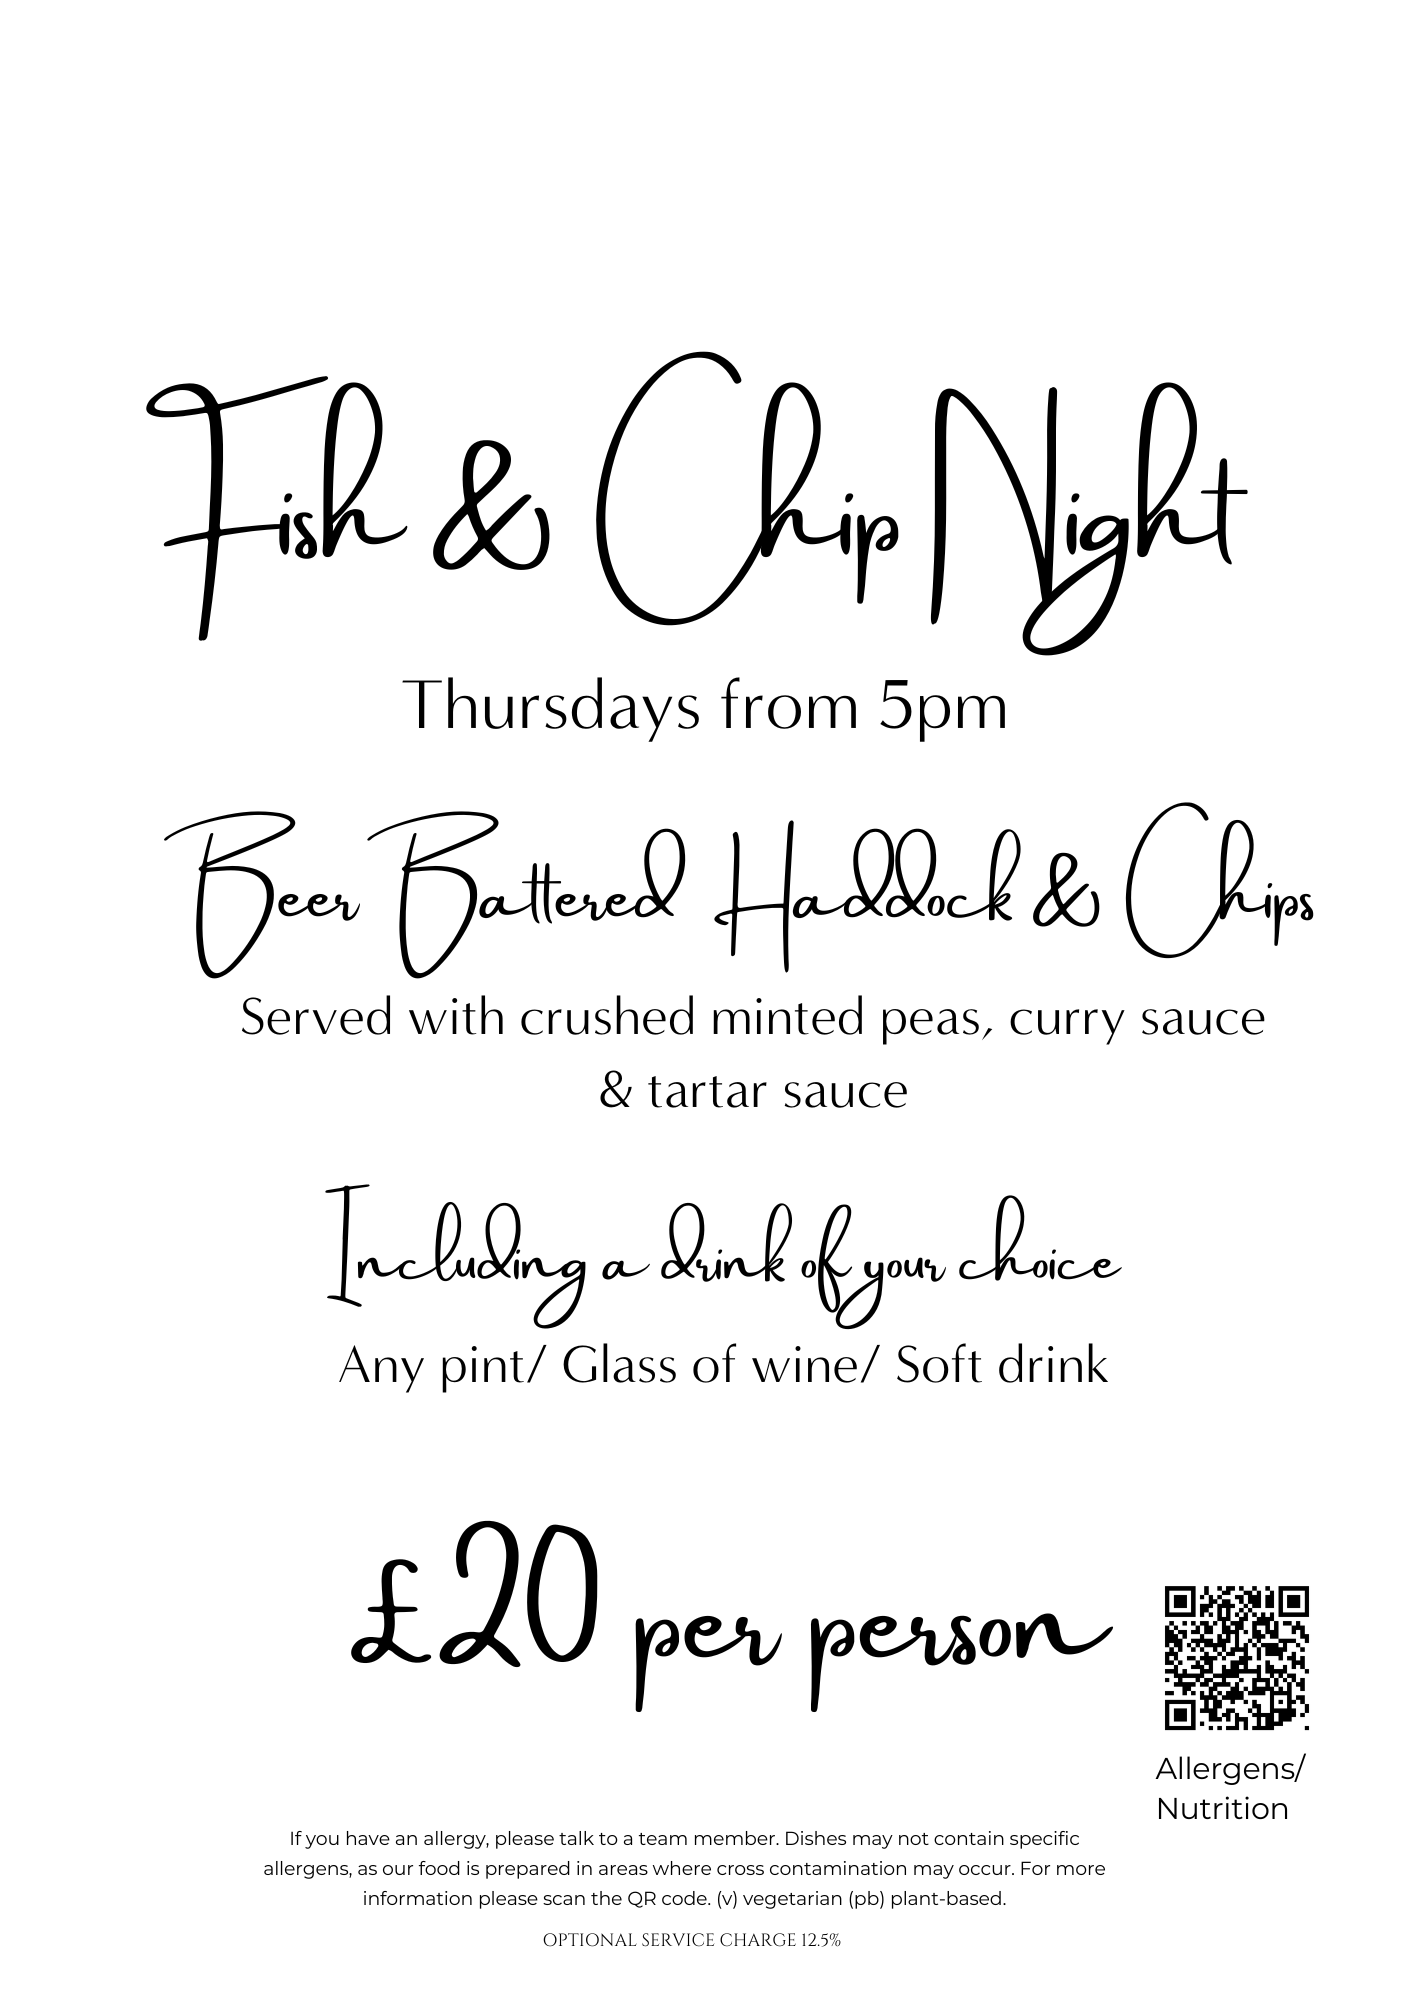 Fish & Chip Night
Thursdays from 5pm
Beer Battered Haddock & Chips
Served with crushed minted peas, curry sauce
& tartar sauce
Including a drink of your choice
Any pint/ Glass of wine/ Soft drink
£20 per person
Allergens/
Nutrition
If you have an allergy, please talk to a team member. Dishes may not contain specific
allergens, as our food is prepared in areas where cross contamination may occur. For more
information please scan the QR code. (v) vegetarian (pb) plant-based.
OPTIONAL SERVICE CHARGE 12.5%